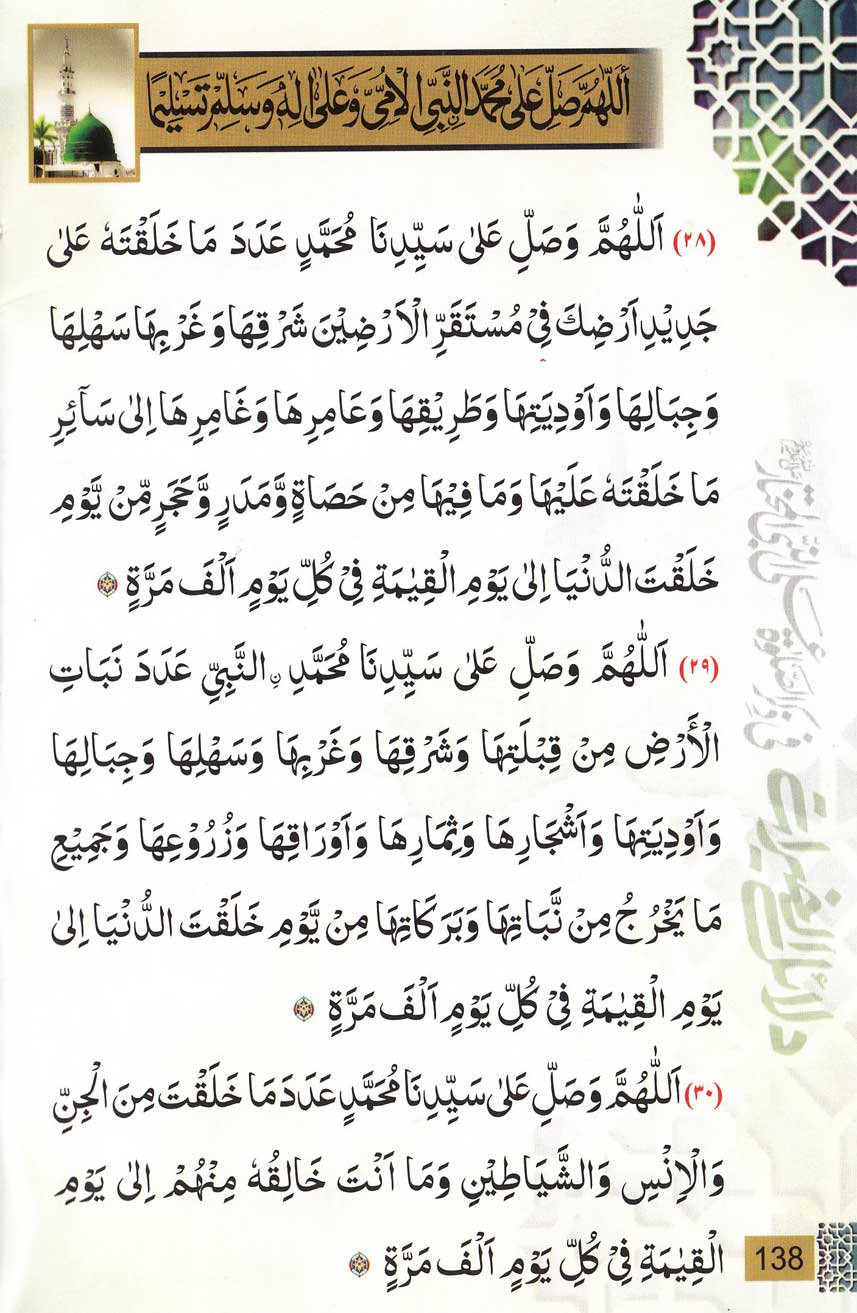 اَللّٰهُمَّ صَلِّ عَلٰى مُحَمَّدِ ۨالنَّبِيِّ الْاُمِّيِّ وَعَلٰى اٰلِهٖ وَسَلِّمْ تَسْلِيْمًا
(٢٨) اَللّٰهُمَّ وَصَلِّ عَلٰى سَيِّدِنَا مُحَمَّدٍ عَدَدَ مَا خَلَقْتَهٗ عَلٰى
جَدِيْدِ اَرْضِكَ فِيْ مُسْتَقَرِّ الْاَرْضِيْنَ شَرْقِهَا وَغَرْبِهَا سَهْلِهَا
وَجِبَالِهَا وَاَوْدِيَتِهَا وَطَرِيْقِهَا وَعَامِرِهَا وَغَامِرِهَا اِلٰى سَآئِرِ
مَا خَلَقْتَهٗ عَلَيْهَا وَمَا فِيْهَا مِنْ حَصَاةٍ وَّمَدَرٍ وَّحَجَرٍ مِّنْ يَّوْمِ
خَلَقْتَ الدُّنْيَا اِلٰى يَوْمِ الْقِيٰمَةِ فِيْ كُلِّ يَوْمٍ اَلْفَ مَرَّةٍ
(٢٩) اَللّٰهُمَّ وَصَلِّ عَلٰى سَيِّدِنَا مُحَمَّدِ ۨ النَّبِيِّ عَدَدَ نَبَاتِ
الْأَرْضِ مِنْ قِبْلَتِهَا وَشَرْقِهَا وَغَرْبِهَا وَسَهْلِهَا وَجِبَالِهَا
وَاَوْدِيَتِهَا وَاَشْجَارِهَا وَثِمَارِهَا وَاَوْرَاقِهَا وَزُرُوْعِهَا وَجَمِيْعِ
مَا يَخْرُجُ مِنْ نَّبَاتِهَا وَبَرَكَاتِهَا مِنْ يَّوْمِ خَلَقْتَ الدُّنْيَا اِلٰى
يَوْمِ الْقِيٰمَةِ فِيْ كُلِّ يَوْمٍ اَلْفَ مَرَّةٍ
(٣٠) اَللّٰهُمَّ وَصَلِّ عَلٰى سَيِّدِنَا مُحَمَّدٍ عَدَدَ مَا خَلَقْتَ مِنَ الْجِنِّ
وَالْاِنْسِ وَالشَّيَاطِيْنِ وَمَا اَنْتَ خَالِقُهٗ مِنْهُمْ اِلٰى يَوْمِ
الْقِيٰمَةِ فِيْ كُلِّ يَوْمٍ اَلْفَ مَرَّةٍ
دلائل الخيرات
138